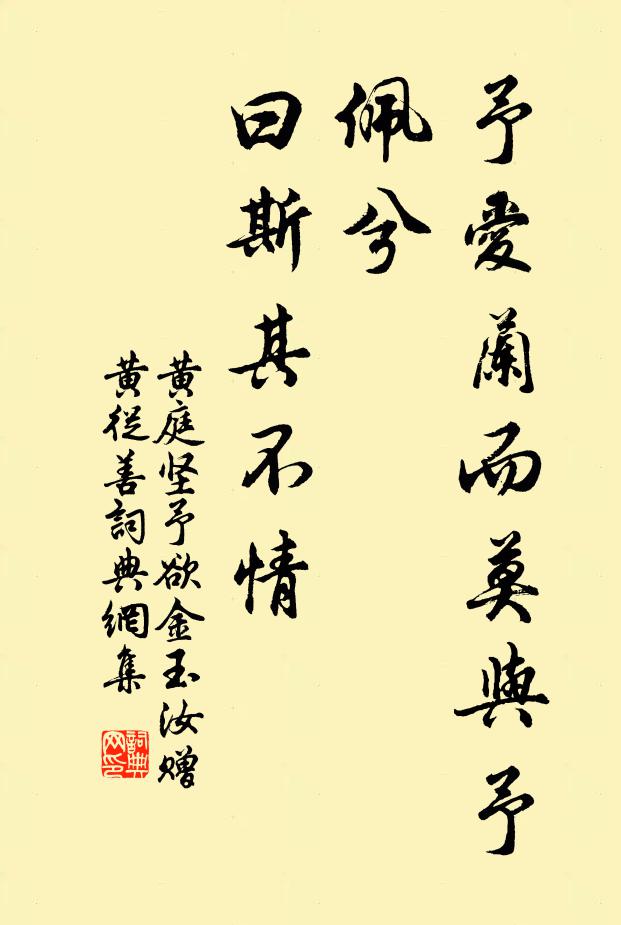 予愛蘭而莫與予
佩兮
曰斯其不情
黄庭坚予欲金玉汝赠
黄從善詞典網集
詞典
网印